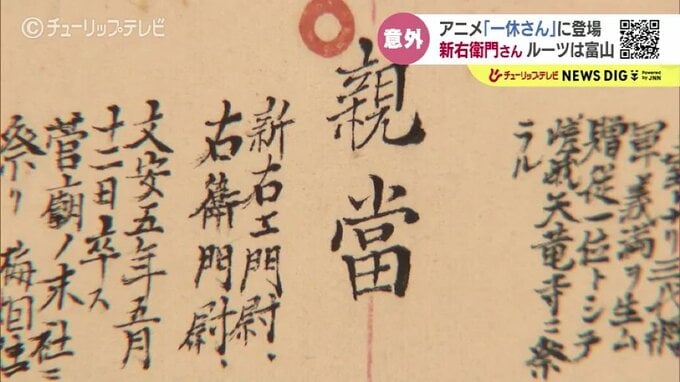 ©チューリップテレビ
意外
アニメ「一休さん」に登場
新右衛門さん ルーツは富山
チューリップテレビ NEWS DIG Powered by JNN
ナリ三代将
軍義満ヲ生ム
贈従一位トシテ
嵯峨天竜寺ニ祭
ラル
親當
新右エ門尉、
右衛門尉、
文安五年五月
十二日卒ス
菅廟ノ末社ニ
祭リ 梅